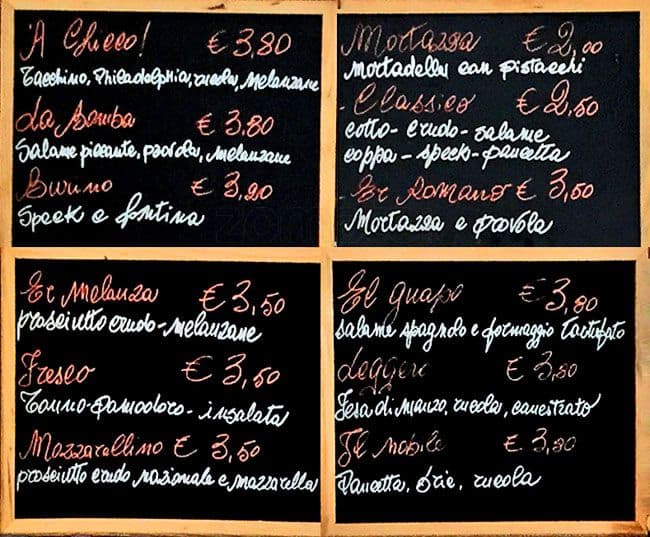 'A Chicco! € 3,80
Tacchino, Philadelphia, rucola, melanzane
La Bomba € 3,80
Salame piccante, provola, melanzane
Buruno € 3,20
Speck e fontina
Mortazza € 2,00
mortadella con pistacchi
Classico € 2,50
cotto - crudo - salame
coppa - speck - pancetta
Er Romano € 3,50
Mortazza e provola
Er Melanza € 3,50
prosciutto crudo - melanzane
Fresco € 3,50
Tonno - pomodoro - insalata
Mozzarellino € 3,50
prosciutto crudo nazionale e mozzarella
El guapo € 3,80
salame spagnolo e formaggio tartufato
Leggero
Fesa di manzo, rucola, canestrato
Il nobile
Pancetta, brie, rucola